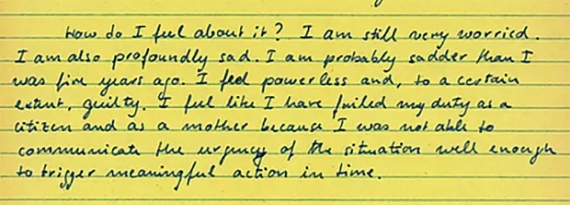 How do I feel about it? I am still very worried.
I am also profoundly sad. I am probably sadder than I
was five years ago. I feel powerless and, to a certain
extent, guilty. I feel like I have failed my duty as a
citizen and as a mother because I was not able to
communicate the urgency of the situation well enough
to trigger meaningful action in time.